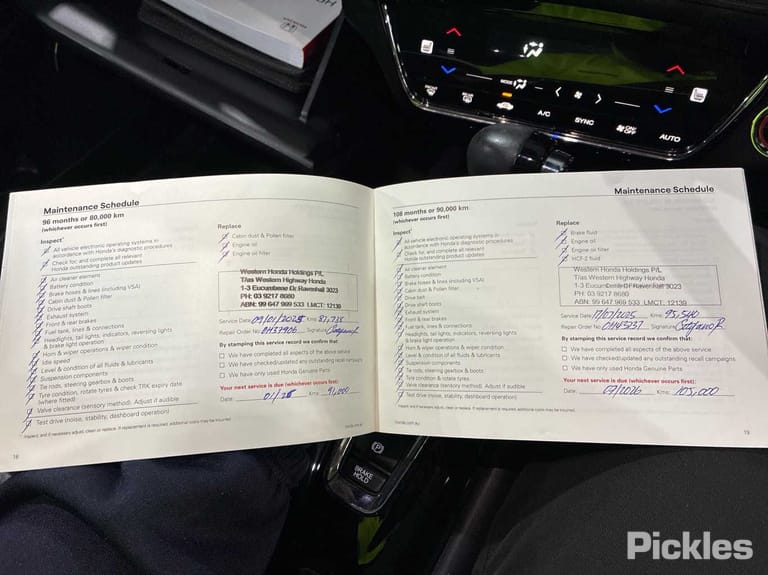 HONDA
MODE
A/C
SYNC
ON/OFF
AUTO
Maintenance Schedule
96 months or 80,000 km
(whichever occurs first)
Inspect*
All vehicle electronic operating systems in
accordance with Honda's diagnostic procedures
Check for, and complete all relevant
Honda outstanding product updates
Air cleaner element
Battery condition
Brake hoses & lines (including VSA)
Cabin dust & Pollen filter
Drive shaft boots
Exhaust system
Front & rear brakes
Fuel tank, lines & connections
Headlights, tail lights, indicators, reversing lights
& brake light operation
Horn & wiper operations & wiper condition
Idle speed
Level & condition of all fluids & lubricants
Suspension components
Tie rods, steering gearbox & boots
Tyre condition, rotate tyres & check TRK expiry date
(where fitted)
Valve clearance (sensory method). Adjust if audible
Test drive (noise, stability, dashboard operation)
*Inspect, and if necessary adjust, clean or replace. If replacement is required, additional costs may be incurred.
18
Replace
Cabin dust & Pollen filter
Engine oil
Engine oil filter
Western Honda Holdings P/L
T/as Western Highway Honda
1-3 Eucumbene Dr Ravenhall 3023
PH: 03 9217 8680
ABN: 99 647 969 533 LMCT: 12139
Service Date 09/01/2025 Kms
Repair Order No. OH37906 Signature
By stamping this service record we confirm that:
We have completed all aspects of the above service
We have checked/updated any outstanding recall campaigns
We have only used Honda Genuine Parts
Your next service is due (whichever occurs first):
Date Kms 91,000
honda.com.au
Maintenance Schedule
108 months or 90,000 km
(whichever occurs first)
Inspect*
All vehicle electronic operating systems in
accordance with Honda's diagnostic procedures
Check for, and complete all relevant
Honda outstanding product updates
Air cleaner element
Battery condition
Brake hoses & lines (including VSA)
Cabin dust & Pollen filter
Drive belt
Drive shaft boots
Exhaust system
Front & rear brakes
Fuel tank, lines & connections
Headlights, tail lights, indicators, reversing lights
& brake light operation
Horn & wiper operations & wiper condition
Level & condition of all fluids & lubricants
Suspension components
Tie rods, steering gearbox & boots
Tyre condition & rotate tyres
Valve clearance (sensory method). Adjust if audible
Test drive (noise, stability, dashboard operation)
*Inspect, and if necessary adjust, clean or replace. If replacement is required, additional costs may be incurred.
honda.com.au
Replace
Brake fluid
Engine oil
Engine oil filter
HCF-2 fluid
Western Honda Holdings P/L
T/as Western Highway Honda
1-3 Eucumbene Dr Ravenhall 3023
PH: 03 9217 8680
ABN: 99 647 969 533 LMCT: 12139
Service Date 17/07/2025 Kms 95,540
Repair Order No. OH43237 Signature
By stamping this service record we confirm that:
We have completed all aspects of the above service
We have checked/updated any outstanding recall campaigns
We have only used Honda Genuine Parts
Your next service is due (whichever occurs first):
Date 07/2026 Kms 105,000
19
BRAKE
HOLD
Pickles